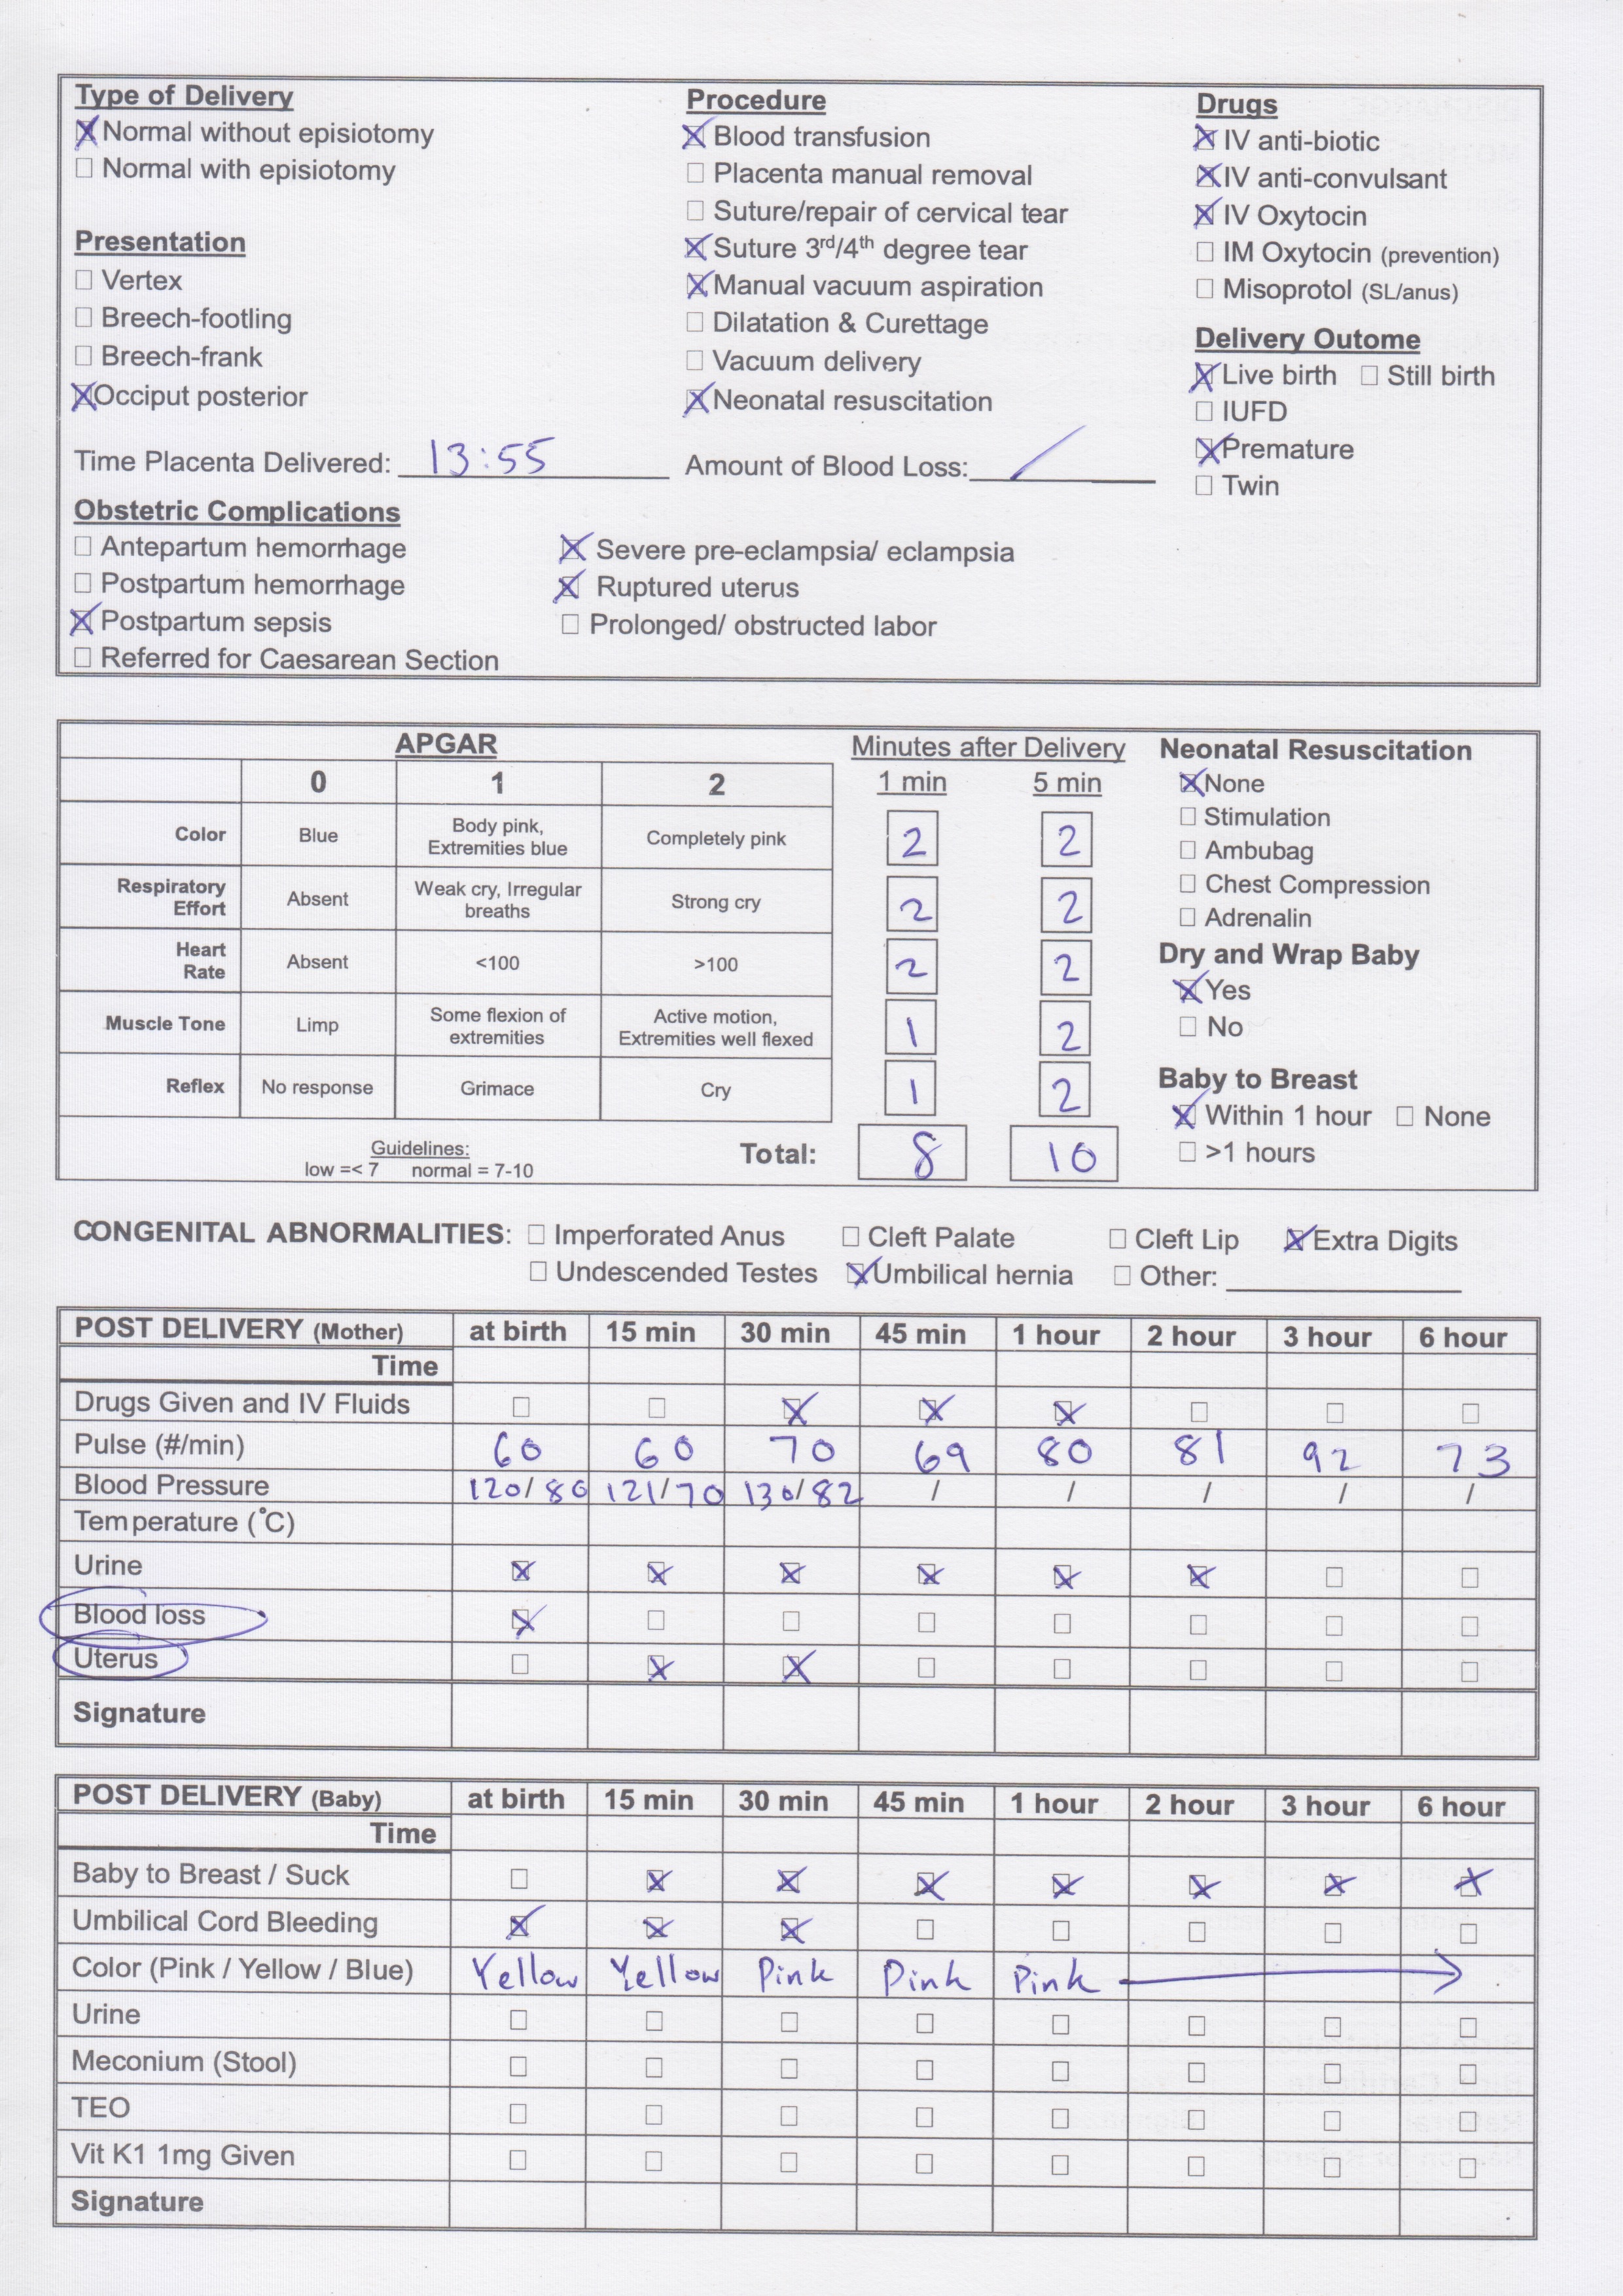 Type of Delivery
☒ Normal without episiotomy
☐ Normal with episiotomy
Presentation
☐ Vertex
☐ Breech-footling
☐ Breech-frank
☒ Occiput posterior
Procedure
☒ Blood transfusion
☐ Placenta manual removal
☐ Suture/repair of cervical tear
☒ Suture 3rd/4th degree tear
☒ Manual vacuum aspiration
☐ Dilatation & Curettage
☐ Vacuum delivery
☒ Neonatal resuscitation
Drugs
☒ IV anti-biotic
☒ IV anti-convulsant
☒ IV Oxytocin
☐ IM Oxytocin (prevention)
☐ Misoprotol (SL/anus)
Delivery Outome
☒ Live birth ☐ Still birth
☐ IUFD
☒ Premature
☐ Twin
Time Placenta Delivered: 13:55 Amount of Blood Loss: /
Obstetric Complications
☐ Antepartum hemorrhage
☐ Postpartum hemorrhage
☒ Postpartum sepsis
☐ Referred for Caesarean Section
☒ Severe pre-eclampsia/ eclampsia
☒ Ruptured uterus
☐ Prolonged/ obstructed labor
APGAR Minutes after Delivery
0 1 2 1 min 5 min
Color Blue Body pink, Extremities blue Completely pink 2 2
Respiratory Effort Absent Weak cry, Irregular breaths Strong cry 2 2
Heart Rate Absent <100 >100 2 2
Muscle Tone Limp Some flexion of extremities Active motion, Extremities well flexed 1 2
Reflex No response Grimace Cry 1 2
Guidelines:
low =< 7 normal = 7-10
Total: 8 10
Neonatal Resuscitation
☒ None
☐ Stimulation
☐ Ambubag
☐ Chest Compression
☐ Adrenalin
Dry and Wrap Baby
☒ Yes
☐ No
Baby to Breast
☒ Within 1 hour ☐ None
☐ >1 hours
CONGENITAL ABNORMALITIES: ☐ Imperforated Anus ☐ Cleft Palate ☐ Cleft Lip ☒ Extra Digits
☐ Undescended Testes ☒ Umbilical hernia ☐ Other:
POST DELIVERY (Mother) at birth 15 min 30 min 45 min 1 hour 2 hour 3 hour 6 hour
Time
Drugs Given and IV Fluids ☐ ☐ ☒ ☒ ☒ ☐ ☐ ☐
Pulse (#/min) 60 60 70 69 80 81 92 73
Blood Pressure 120/80 121/70 130/82 / / / / /
Temperature (°C)
Urine ☒ ☒ ☒ ☒ ☒ ☒ ☐ ☐
Blood loss ☒ ☐ ☐ ☐ ☐ ☐ ☐ ☐
Uterus ☐ ☒ ☒ ☐ ☐ ☐ ☐ ☐
Signature
POST DELIVERY (Baby) at birth 15 min 30 min 45 min 1 hour 2 hour 3 hour 6 hour
Time
Baby to Breast / Suck ☐ ☒ ☒ ☒ ☒ ☒ ☒ ☒
Umbilical Cord Bleeding ☒ ☒ ☒ ☐ ☐ ☐ ☐ ☐
Color (Pink / Yellow / Blue) Yellow Yellow Pink Pink Pink →
Urine ☐ ☐ ☐ ☐ ☐ ☐ ☐ ☐
Meconium (Stool) ☐ ☐ ☐ ☐ ☐ ☐ ☐ ☐
TEO ☐ ☐ ☐ ☐ ☐ ☐ ☐ ☐
Vit K1 1mg Given ☐ ☐ ☐ ☐ ☐ ☐ ☐ ☐
Signature